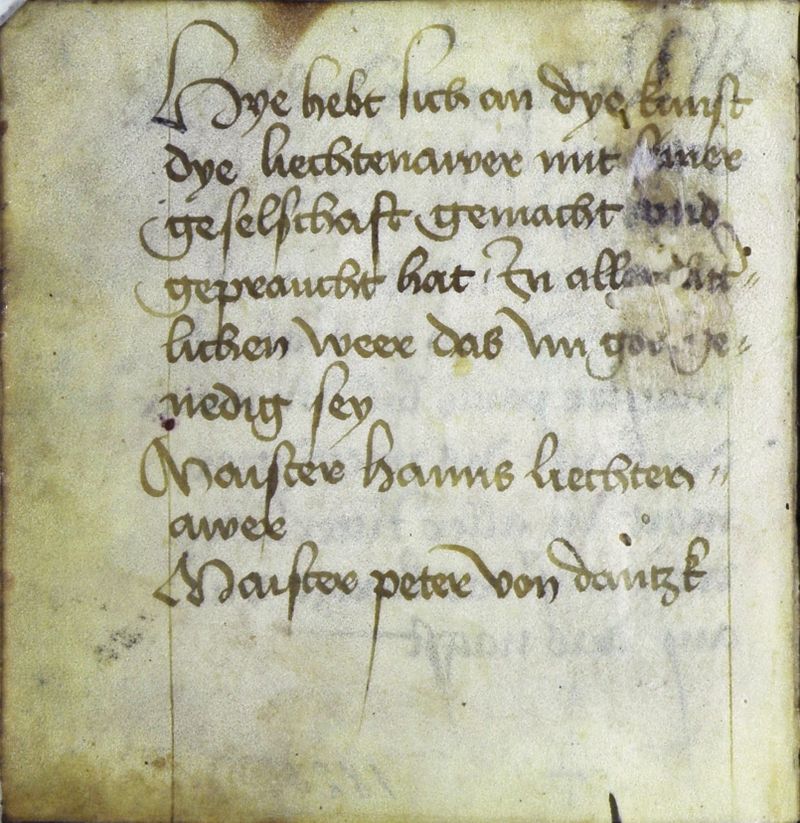 Hye hebt sich an dye kunst
dye liechtenawer mit seiner
geselschaft gemacht vnd
gepraucht hat In aller ritt=
lichen weer das im got ge=
nedig sey
Maister hanns liechten=
awer
Maister peter von dantzk